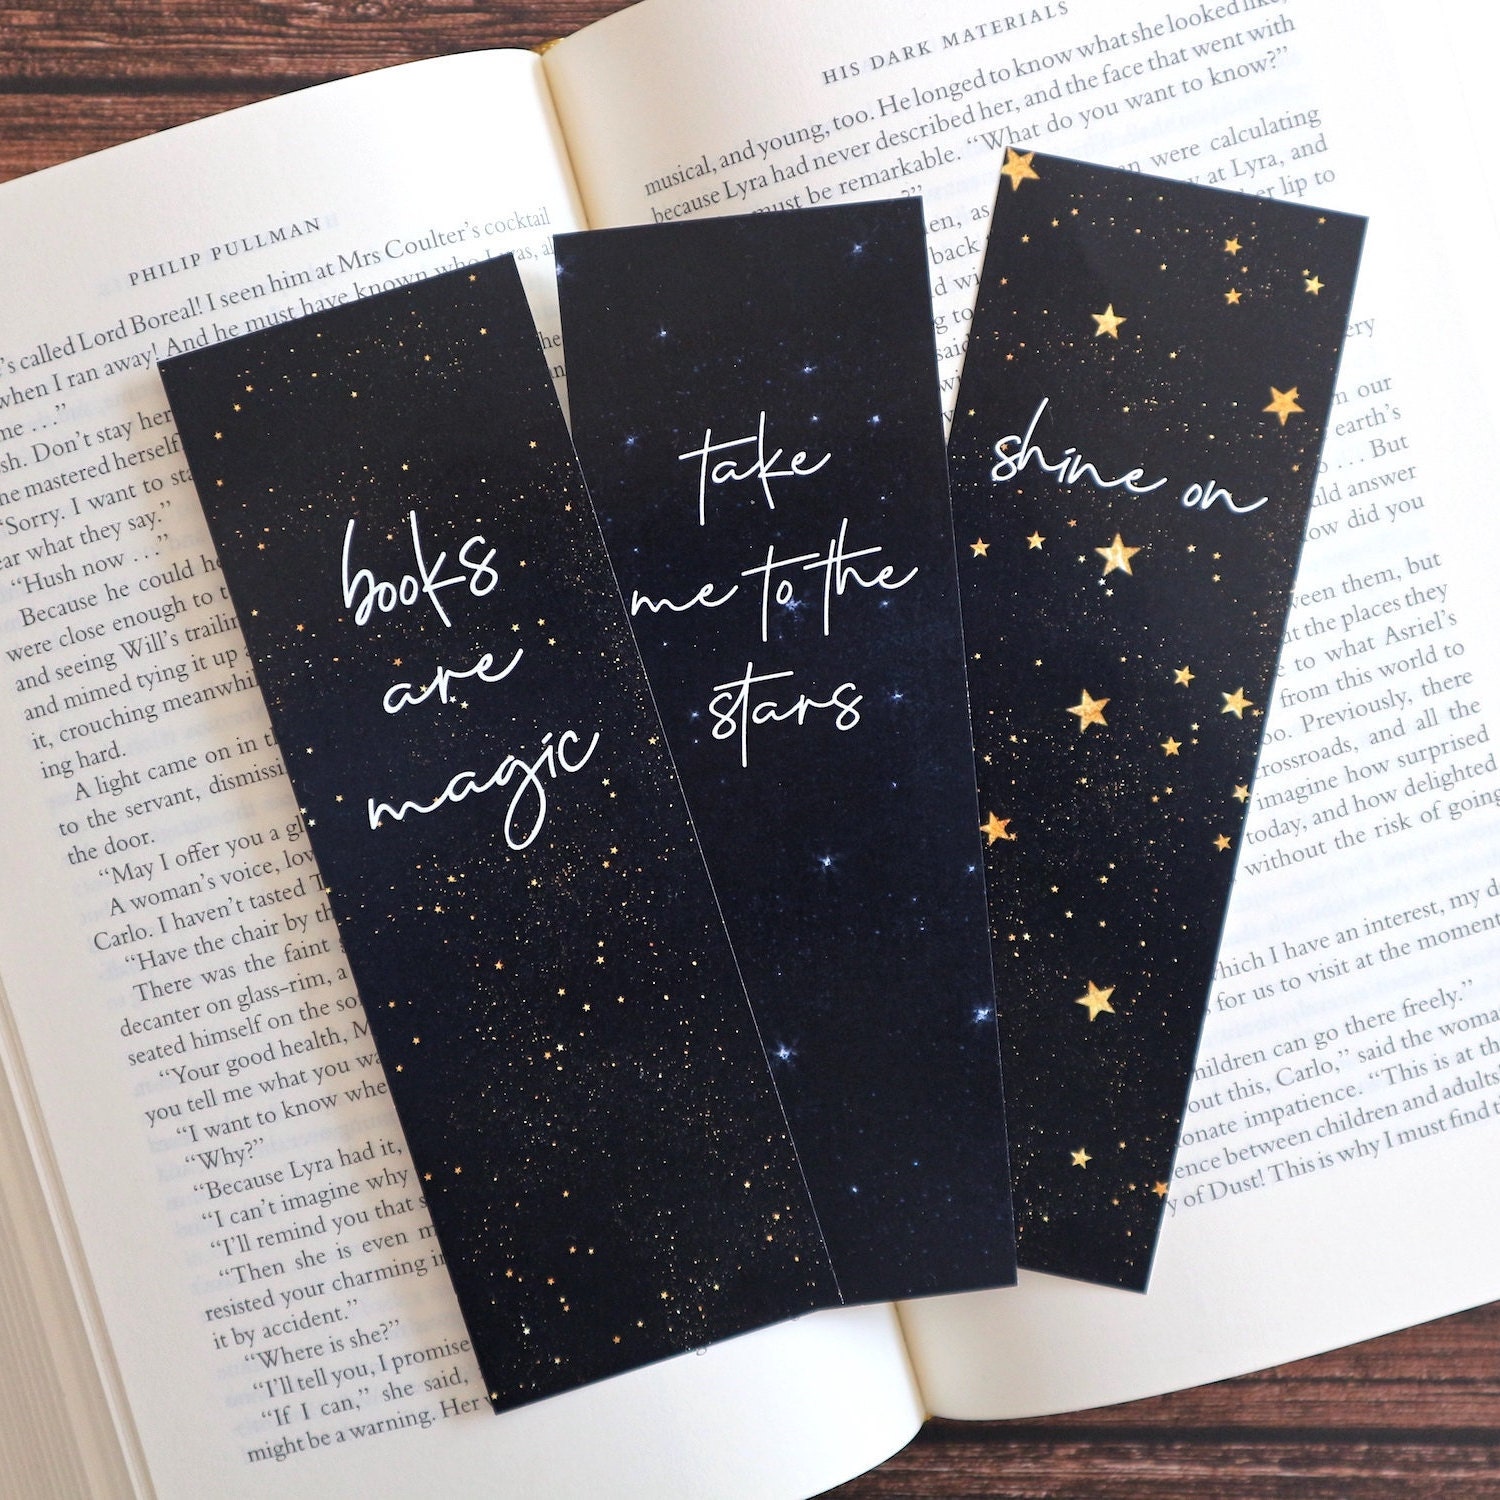 PHILIP PULLMAN
's called Lord Boreal! I seen him at Mrs Coulter's cocktail
when I ran away! And he must have known who Lyra was,
me . . ."
sh. Don't stay her
he mastered herself
"Sorry. I want to
ear what they say."
"Hush now . . ."
Because he could
were close enough to
and seeing Will's
and mimed tying it up
it, crouching meanwhile
ing hard.
A light came on in
to the servant,
the door.
"May I offer you a
A woman's voice,
Carlo. I haven't tasted
"Have the chair by
There was the faint
decanter on glass-rim, a
seated himself on the
"Your good health,
you tell me what you
"I want to know
"Why?"
"Because Lyra had it,
"I can't imagine why
"I'll remind you that
"Then she is even
resisted your charming
it by accident."
"Where is she?"
"I'll tell you, I promise
"If I can," she said,
might be a warning. Her
books
are
magic
take
me to the
stars
shine on
HIS DARK MATERIALS
musical, and young, too. He longed to know what she looked like,
because Lyra had never described her, and the face that went with
must be remarkable. "What do you want to know?"
were calculating
as at Lyra, and
back her lip to
our
earth's
. . . But
answer
how did you
them, but
the places they
to what Asriel's
from this world to
Previously, there
crossroads, and all the
imagine how surprised
today, and how delighted
without the risk of going
which I have an interest, my
for us to visit at the moment
children can go there freely."
out this, Carlo," said the
impatience. "This is at
between children and
of Dust! This is why I must find